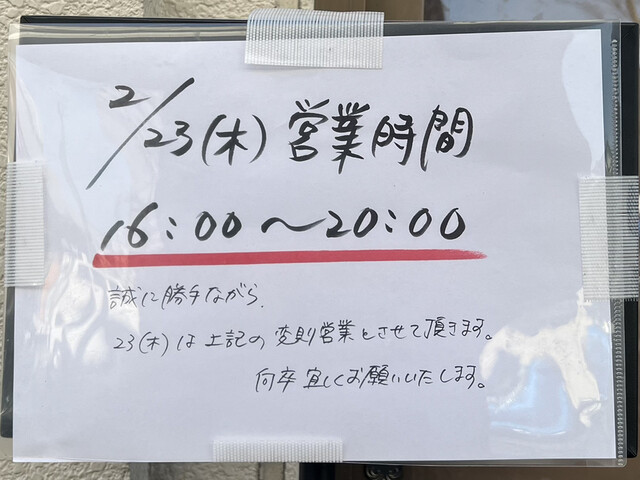 2/23(木) 営業時間
16:00〜20:00
誠に勝手ながら、
23(木)は上記の変則営業とさせて頂きます。
何卒宜しくお願いいたします。